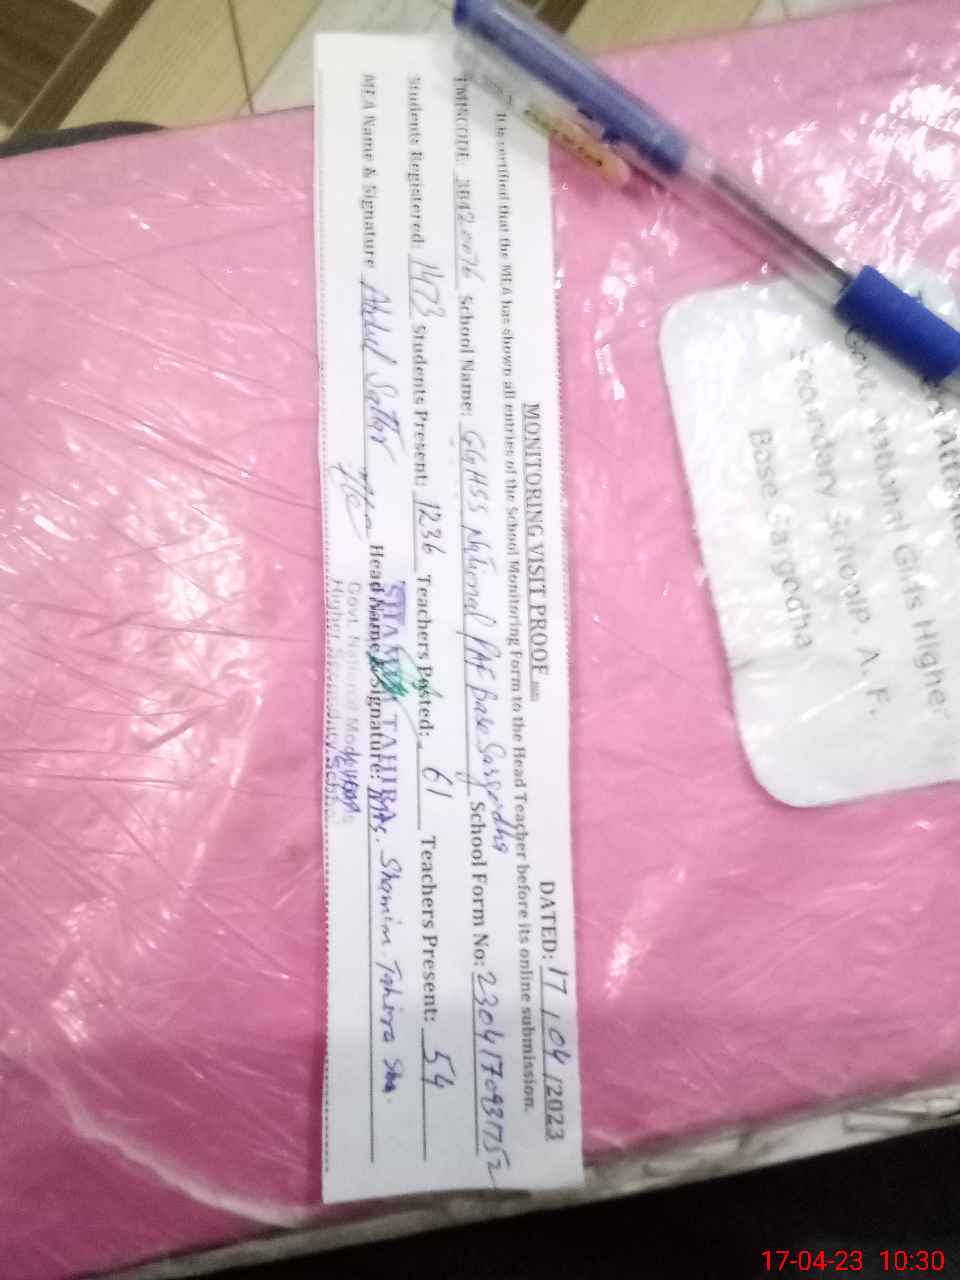 MONITORING VISIT PROOF
DATED: 17/04/2023
It is certified that the MEA has shown all entries of the School Monitoring Form to the Head Teacher before its online submission.
EMISCODE 38420076 School Name: GGHSS National PAF Base Sargodha School Form No: 2304170931752
Students Registered: 1473 Students Present: 1236 Teachers Posted: 61 Teachers Present: 54
MEA Name & Signature Abdul Sattar Head Name Signature: Mrs. Shamim Tahirra
TAHIRA
Govt. National Model
Higher Secondary
Govt. National Girls Higher
Secondary School P. A. F.
Base Sargodha
17-04-23 10:30